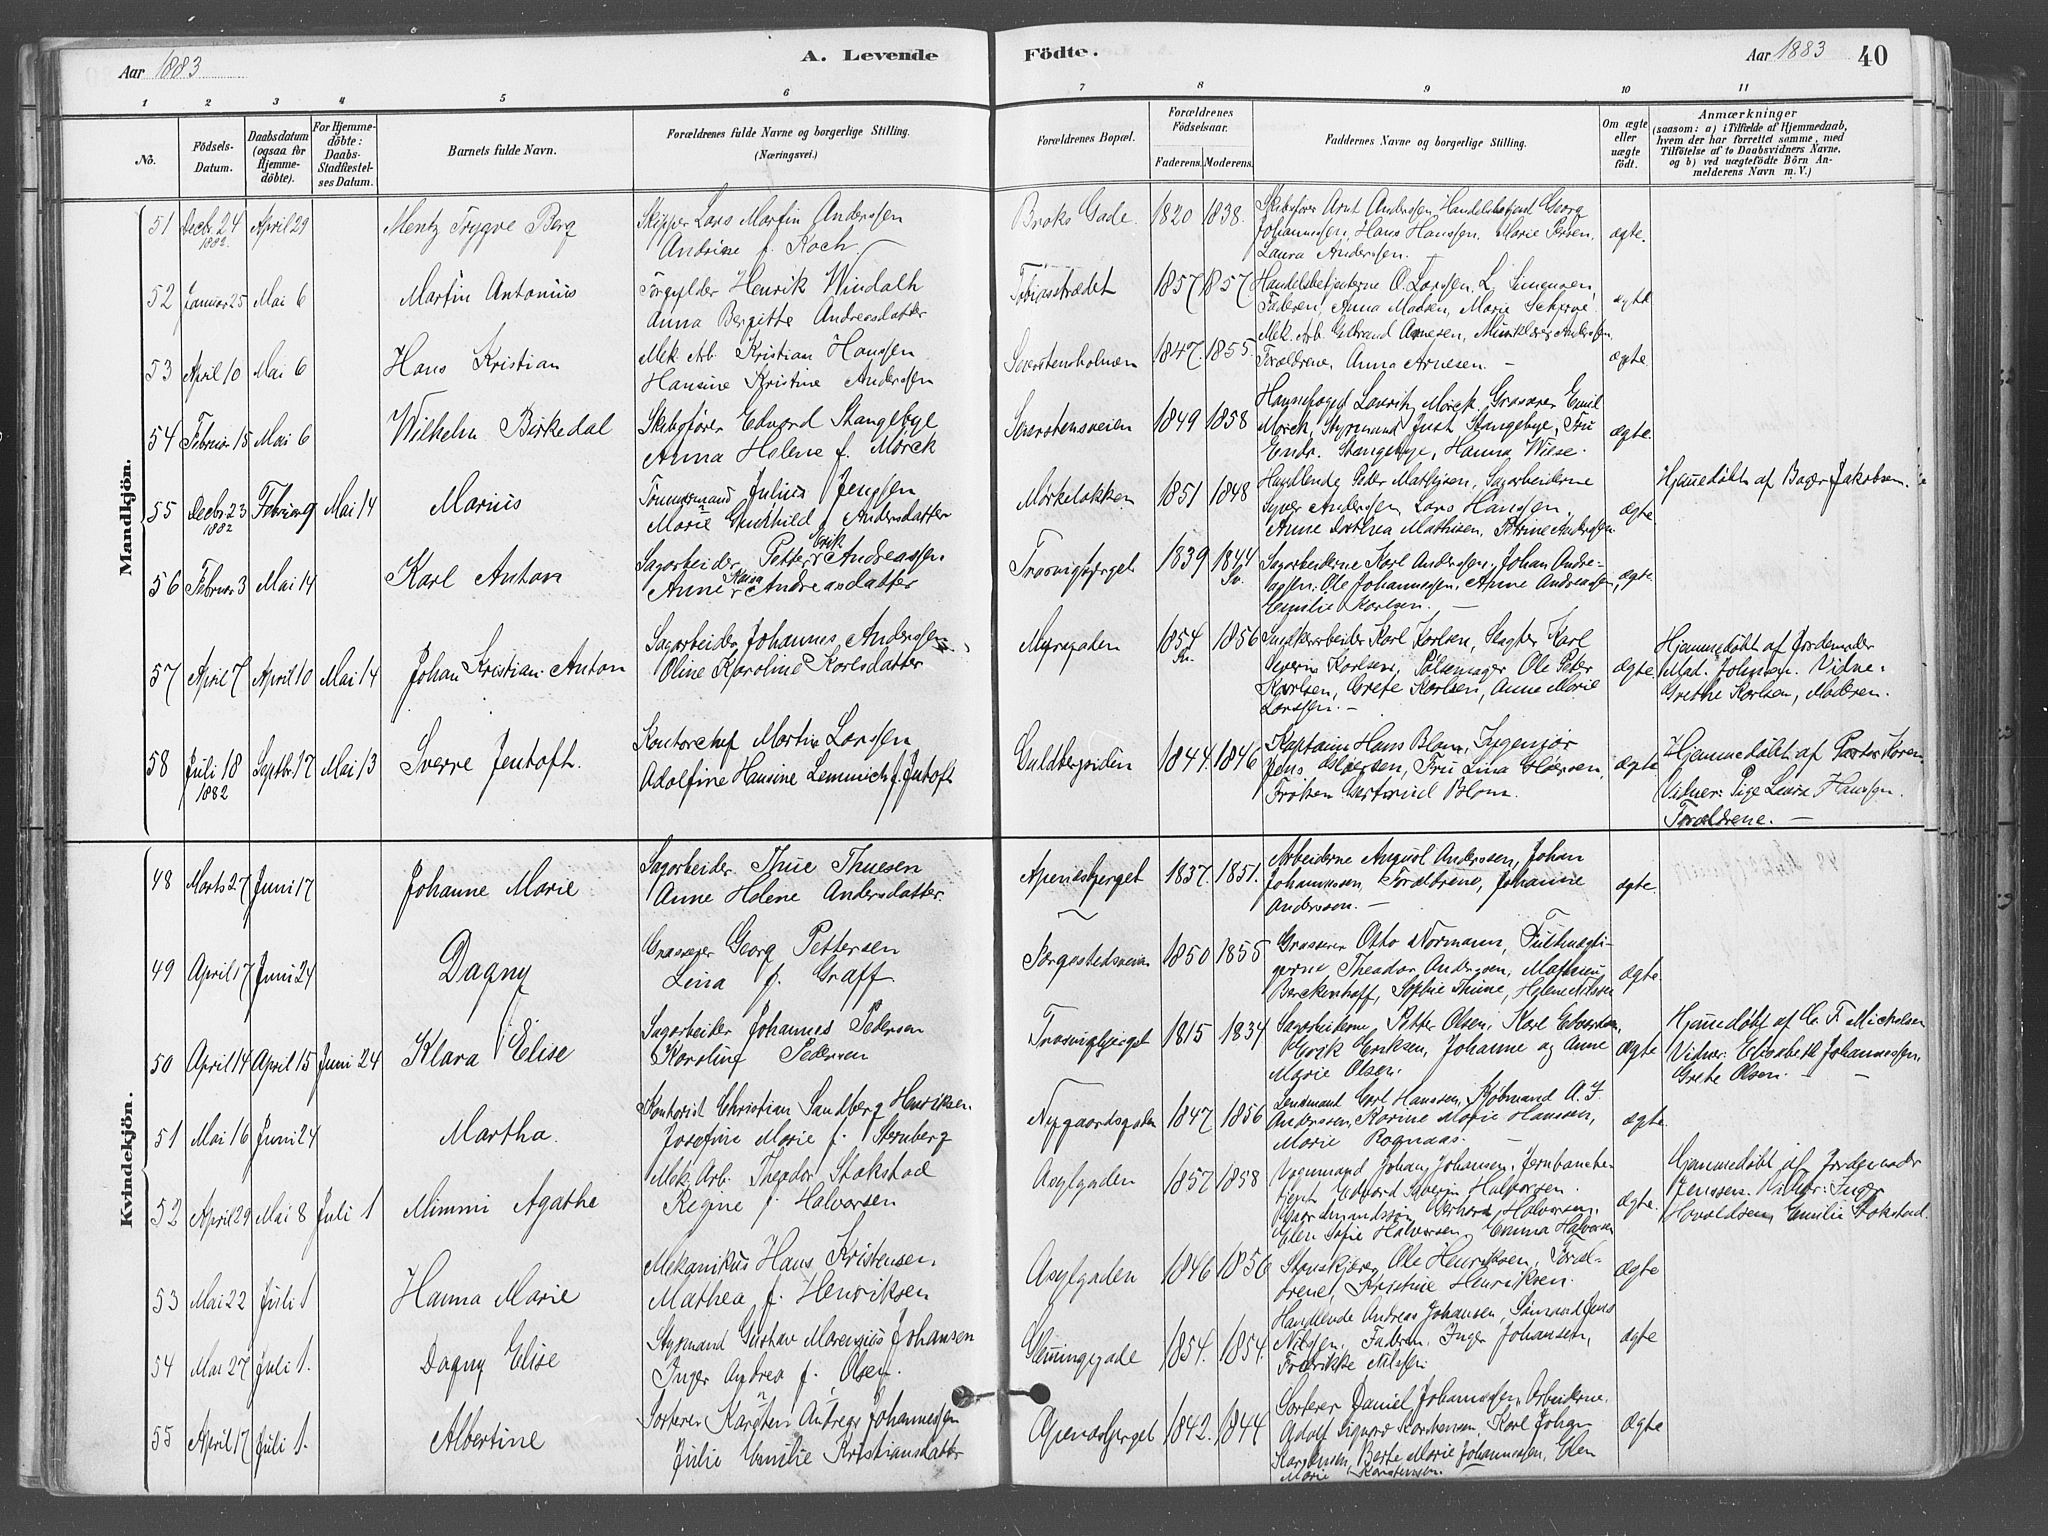 Aar 1883
A. Levende
Födte.
Aar 1883
40
1 2 3 4 5 6 7 8 9 10 11
No.
Födsels-
Datum.
Daabsdatum
(ogsaa for
Hjemme-
döbte).
For Hjemme-
döbte:
Daabs-
Stadfæstel-
ses Datum.
Barnets fulde Navn.
Forældrenes fulde Navne og borgerlige Stilling.
(Næringsvei.)
Forældrenes Bopæl.
Forældrenes
Födselsaar.
Faderens. Moderens.
Faddernes Navne og borgerlige Stilling.
Om ægte
eller
uægte
födt.
Anmærkninger
(saasom: a) i Tilfælde af Hjemmedaab,
hvem der har forrettet samme, med
Tilföielse af to Daabsvidners Navne,
og b) ved uægtefödte Börn An-
melderens Navn m. V.)
Mandkjön.
51 Decbr. 24 1882 April 29 Mentz Trygve Berg
Skipper Lars Martin Anderssen
Andrine f. Koch
Broks Gade. 1820 1838.
Skibsfører Arnt Anderssen, Handelsbetjent Georg
Johannessen, Hans Hanssen, Marie
Laura Anderssen. ægte.
52 Januar 25 Mai 6 Martin Antonius
Henrik Windahl
Anna Bergitte Andreasdatter
Tobiasstrædet 1857 1857
Handelsbetjenterne O. Larssen, L. Simensen,
Faderen, Anna Madsen, Marie ægte
53 April 10 Mai 6 Hans Kristian
Mek. Arb. Kristian Hanssen
Hansine Kristine Anderssen
1847. 1855.
Mek. Arb. Gulbrand Arnesen,
Forældrene, Anna Arnesen. ægte
54 Februar 15 Mai 6 Wilhelm Birkedal
Skibsfører Edvard Stangebye
Anna Helene f. Mørck
1849 1858
Havnefoged Lauritz Mørck, Grosserer Emil
Mørck, Styrmand Just Stangebye, Fru
Stangebye, Hanna Wiese. ægte.
55 Decbr. 23 1882 Februar 9 Mai 14 Marius
Tømmermand Julius Jenssen
Marie Gunhild Andersdatter
Mørkeløkken 1851 1848
Handlende Peder Mathisen, Sagarbeiderne
Syver Anderssen, Lars Hanssen,
Anne Dorthea Mathisen, Petrine Anderssen ægte
Hjemmedøbt af Bager Jakobsen.
56 Februar 3 Mai 14 Karl Anton
Sagarbeider Petter Erik Andreassen
Anne Kaisa Andreasdatter
Trosvigbjerget 1839 1844 Sv.
Sagarbeiderne Karl Anderssen, Johan Andre-
assen, Ole Johannessen, Anne Andreassen,
Emilie Karlsen. ægte.
57 April 7 April 10 Mai 14 Johan Kristian Anton
Sagarbeider Johannes Anderssen
Oline Karoline Karlsdatter
Myregaden 1854 Sv. 1856
Karl Karlsen, Slagter Karl
Severin Karlsen, Pølsemager Ole Peder
Karlsen, Grete Karlsen, Anne Marie
Larssen. ægte.
Hjemmedøbt af Jordemoder
Mad. Johnsen. Vidne:
Grethe Karlsen, Moderen.
58 Juli 18 1882 Septbr. 17 Mai 13 Sverre Jentoft.
Kontorchef Martin Larssen
Adolfine Hansine Lemmich f. Jentoft
Guldbergsiden 1844. 1846
Kaptain Hans Blom, Ingeniør
Jens Fru Lina
Frøken Gertrud Blom. ægte
Hjemmedøbt af Pastor Koren.
Vidner: Pige Laura Hanssen.
Forældrene.
Kvindekjön.
48 Marts 27 Juni 17 Johanne Marie
Sagarbeider Thue Thuesen
Anne Helene Andersdatter.
Apenesbjerget 1837. 1851.
Arbeiderne August Anderssen, Johan
Johannessen, Forældrene, Johanne
Anderssen. ægte.
49 April 17 Juni 24 Dagny
Grosserer Georg Pettersen
Lina f. Graff
1850 1855
Grosserer Otto Normann, Fuldmægti-
gerne Theodor Anderssen, Mathieu
Berckenhoff, Sophie Thiine, Helene Nilssen ægte.
50 April 14 April 15 Juni 24 Klara Elise
Sagarbeider Johannes Pedersen
Karoline Pedersen
Trosvigbjerget 1815 1834
Sagarbeiderne Petter Olsen, Karl Edvardsen,
Erik Eriksen, Johanne og Anne
Marie Olsen. ægte
Hjemmedøbt af C. F. Michelsen
Vidner: Elisabeth Johannessen,
Grete Olsen.
51 Mai 16 Juni 24 Martha.
Kontorist Christian Sandberg Henriksen.
Josefine Marie f. Sternberg
Nygaardsgaden 1847 1856
Lensmand Carl Hanssen, Kjøbmand A. F.
Anderssen, Karine Marie Hanssen,
Marie Rognaas. ægte.
52 April 29 Mai 8 Juli 1 Mimmi Agathe
Mek. Arb. Theodor Stokstad
Regine f. Halvorsen
Asylgaden 1857 1858
Vognmand Johan Johansen, Jernbanebe-
tjent Edvard Severin Halvorsen,
Gaardmandssøn Halvorsen,
Elen Sofie Halvorsen, Emma Halvorsen ægte.
Hjemmedøbt af Jordemoder
Jenssen. Vidner: Inger
Emilie Stokstad.
53 Mai 22 Juli 1 Hanna Marie
Mekanikus Hans Kristensen,
Mathea f. Henriksen
Asylgaden 1846 1856
Ole Henriksen, Foræl-
drene, Kristine Henriksen. ægte
54 Mai 27 Juli 1. Dagny Elise
Styrmand Gustav Marensius Johansen
Inger Andrea f. Olsen.
Glemmingegade 1854. 1854.
Handlende Andreas Johansen, Sømand Jens
Nilssen, Faderen, Inger Johansen,
Fredrikke Nilssen ægte
55 April 17 Juli 1. Albertine
Sorterer Karsten Andreas Johannessen
Julie Emilie Kristiansdatter
Apenesbjerget 1842. 1844
Sorterer Daniel Johannessen, Arbeiderne
Adolf Sigvard Karstensen, Karl Johan
Karstensen, Berte Marie Johannessen, Elen
Marie Karstensen. ægte